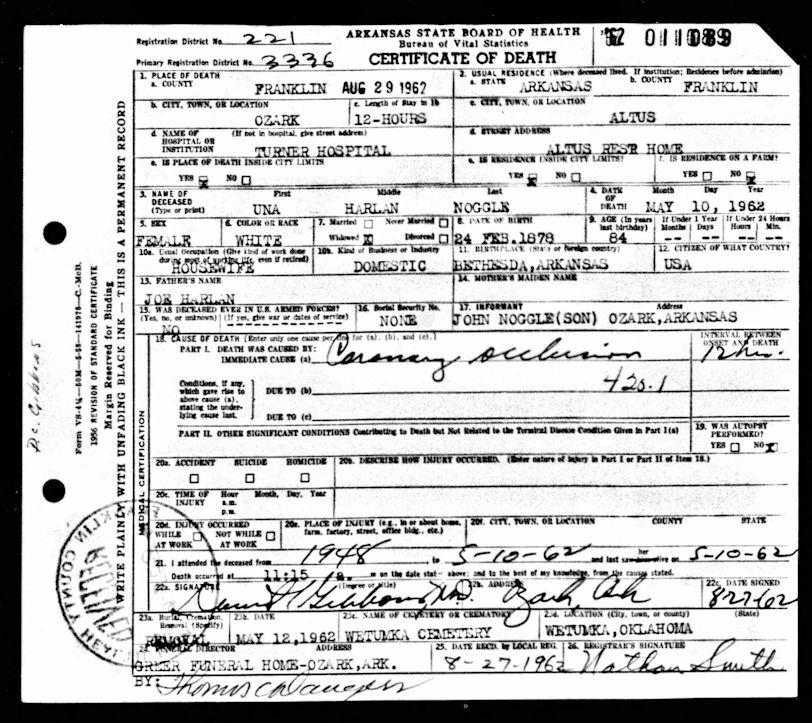 ARKANSAS STATE BOARD OF HEALTH
Bureau of Vital Statistics
CERTIFICATE OF DEATH
62 011089
Registration District No. 221
Primary Registration District No. 3336
1. PLACE OF DEATH
a. COUNTY FRANKLIN AUG 29 1962
2. USUAL RESIDENCE (Where deceased lived. If institution; Residence before admission)
a. STATE ARKANSAS b. COUNTY FRANKLIN
b. CITY, TOWN, OR LOCATION OZARK
c. Length of Stay in 1b 12-HOURS
c. CITY, TOWN, OR LOCATION ALTUS
d. NAME OF HOSPITAL OR INSTITUTION (If not in hospital, give street address) TURNER HOSPITAL
d. STREET ADDRESS ALTUS REST HOME
e. IS PLACE OF DEATH INSIDE CITY LIMITS? YES X NO
e. IS RESIDENCE INSIDE CITY LIMITS? YES X NO
f. IS RESIDENCE ON A FARM? YES NO X
3. NAME OF DECEASED (Type or print)
First Middle Last
UNA HARLAN NOGGLE
4. DATE OF DEATH Month Day Year
MAY 10, 1962
5. SEX FEMALE
6. COLOR OR RACE WHITE
7. Married Never Married Widowed X Divorced
8. DATE OF BIRTH 24 FEB.1878
9. AGE (In years last birthday) 84
If Under 1 Year Months Days -- --
If Under 24 Hours Hours Min. -- --
10a. Usual Occupation (Give kind of work done during most of working life, even if retired) HOUSEWIFE
10b. Kind of Business or Industry DOMESTIC
11. BIRTHPLACE (State or foreign country) BETHESDA,ARKANSAS
12. CITIZEN OF WHAT COUNTRY? USA
13. FATHER'S NAME JOE HARLAN
14. MOTHER'S MAIDEN NAME
15. WAS DECEASED EVER IN U.S. ARMED FORCES?
(Yes, no, or unknown) (If yes, give war or dates of service) NO
16. Social Security No. NONE
17. INFORMANT Address
JOHN NOGGLE(SON) OZARK,ARKANSAS
18. CAUSE OF DEATH [Enter only one cause per line for (a), (b), and (c).]
INTERVAL BETWEEN ONSET AND DEATH
PART I. DEATH WAS CAUSED BY:
IMMEDIATE CAUSE (a) Coronary occlusion 12 hrs.
420.1
Conditions, if any, which gave rise to above cause (a), stating the underlying cause last.
DUE TO (b)
DUE TO (c)
PART II. OTHER SIGNIFICANT CONDITIONS Contributing to Death but Not Related to the Terminal Disease Condition Given in Part I(a)
19. WAS AUTOPSY PERFORMED? YES NO X
20a. ACCIDENT SUICIDE HOMICIDE
20b. DESCRIBE HOW INJURY OCCURRED. (Enter nature of injury in Part I or Part II of Item 18.)
20c. TIME OF INJURY Hour Month, Day, Year
a.m.
p.m.
20d. INJURY OCCURRED
WHILE AT WORK NOT WHILE AT WORK
20e. PLACE OF INJURY (e.g., in or about home, farm, factory, street, office bldg., etc.)
20f. CITY, TOWN, OR LOCATION COUNTY STATE
21. I attended the deceased from 1948 to 5-10-62 and last saw her alive on 5-10-62
Death occurred at 11:15 a. m on the date stated above; and to the best of my knowledge, from the causes stated.
22a. SIGNATURE (Degree or title) Gibbons MD
22b. ADDRESS Ozark, Ark
22c. DATE SIGNED 8-27-62
23a. Burial, Cremation, Removal (Specify) REMOVAL
23b. DATE MAY 12,1962
23c. NAME OF CEMETERY OR CREMATORY WETUMKA CEMETERY
23d. LOCATION (City, town, or county) (State)
WETUMKA, OKLAHOMA
24. FUNERAL DIRECTOR ADDRESS
GREER FUNERAL HOME-OZARK,ARK.
BY: Thomas
25. DATE RECD. BY LOCAL REG. 8-27-1962
26. REGISTRAR'S SIGNATURE Nathan Smith
MEDICAL CERTIFICATION
WRITE PLAINLY WITH UNFADING BLACK INK — THIS IS A PERMANENT RECORD
Margin Reserved for Binding
1956 REVISION OF STANDARD CERTIFICATE
Dr. Gibbons
FRANKLIN COUNTY HEALTH
RECEIVED